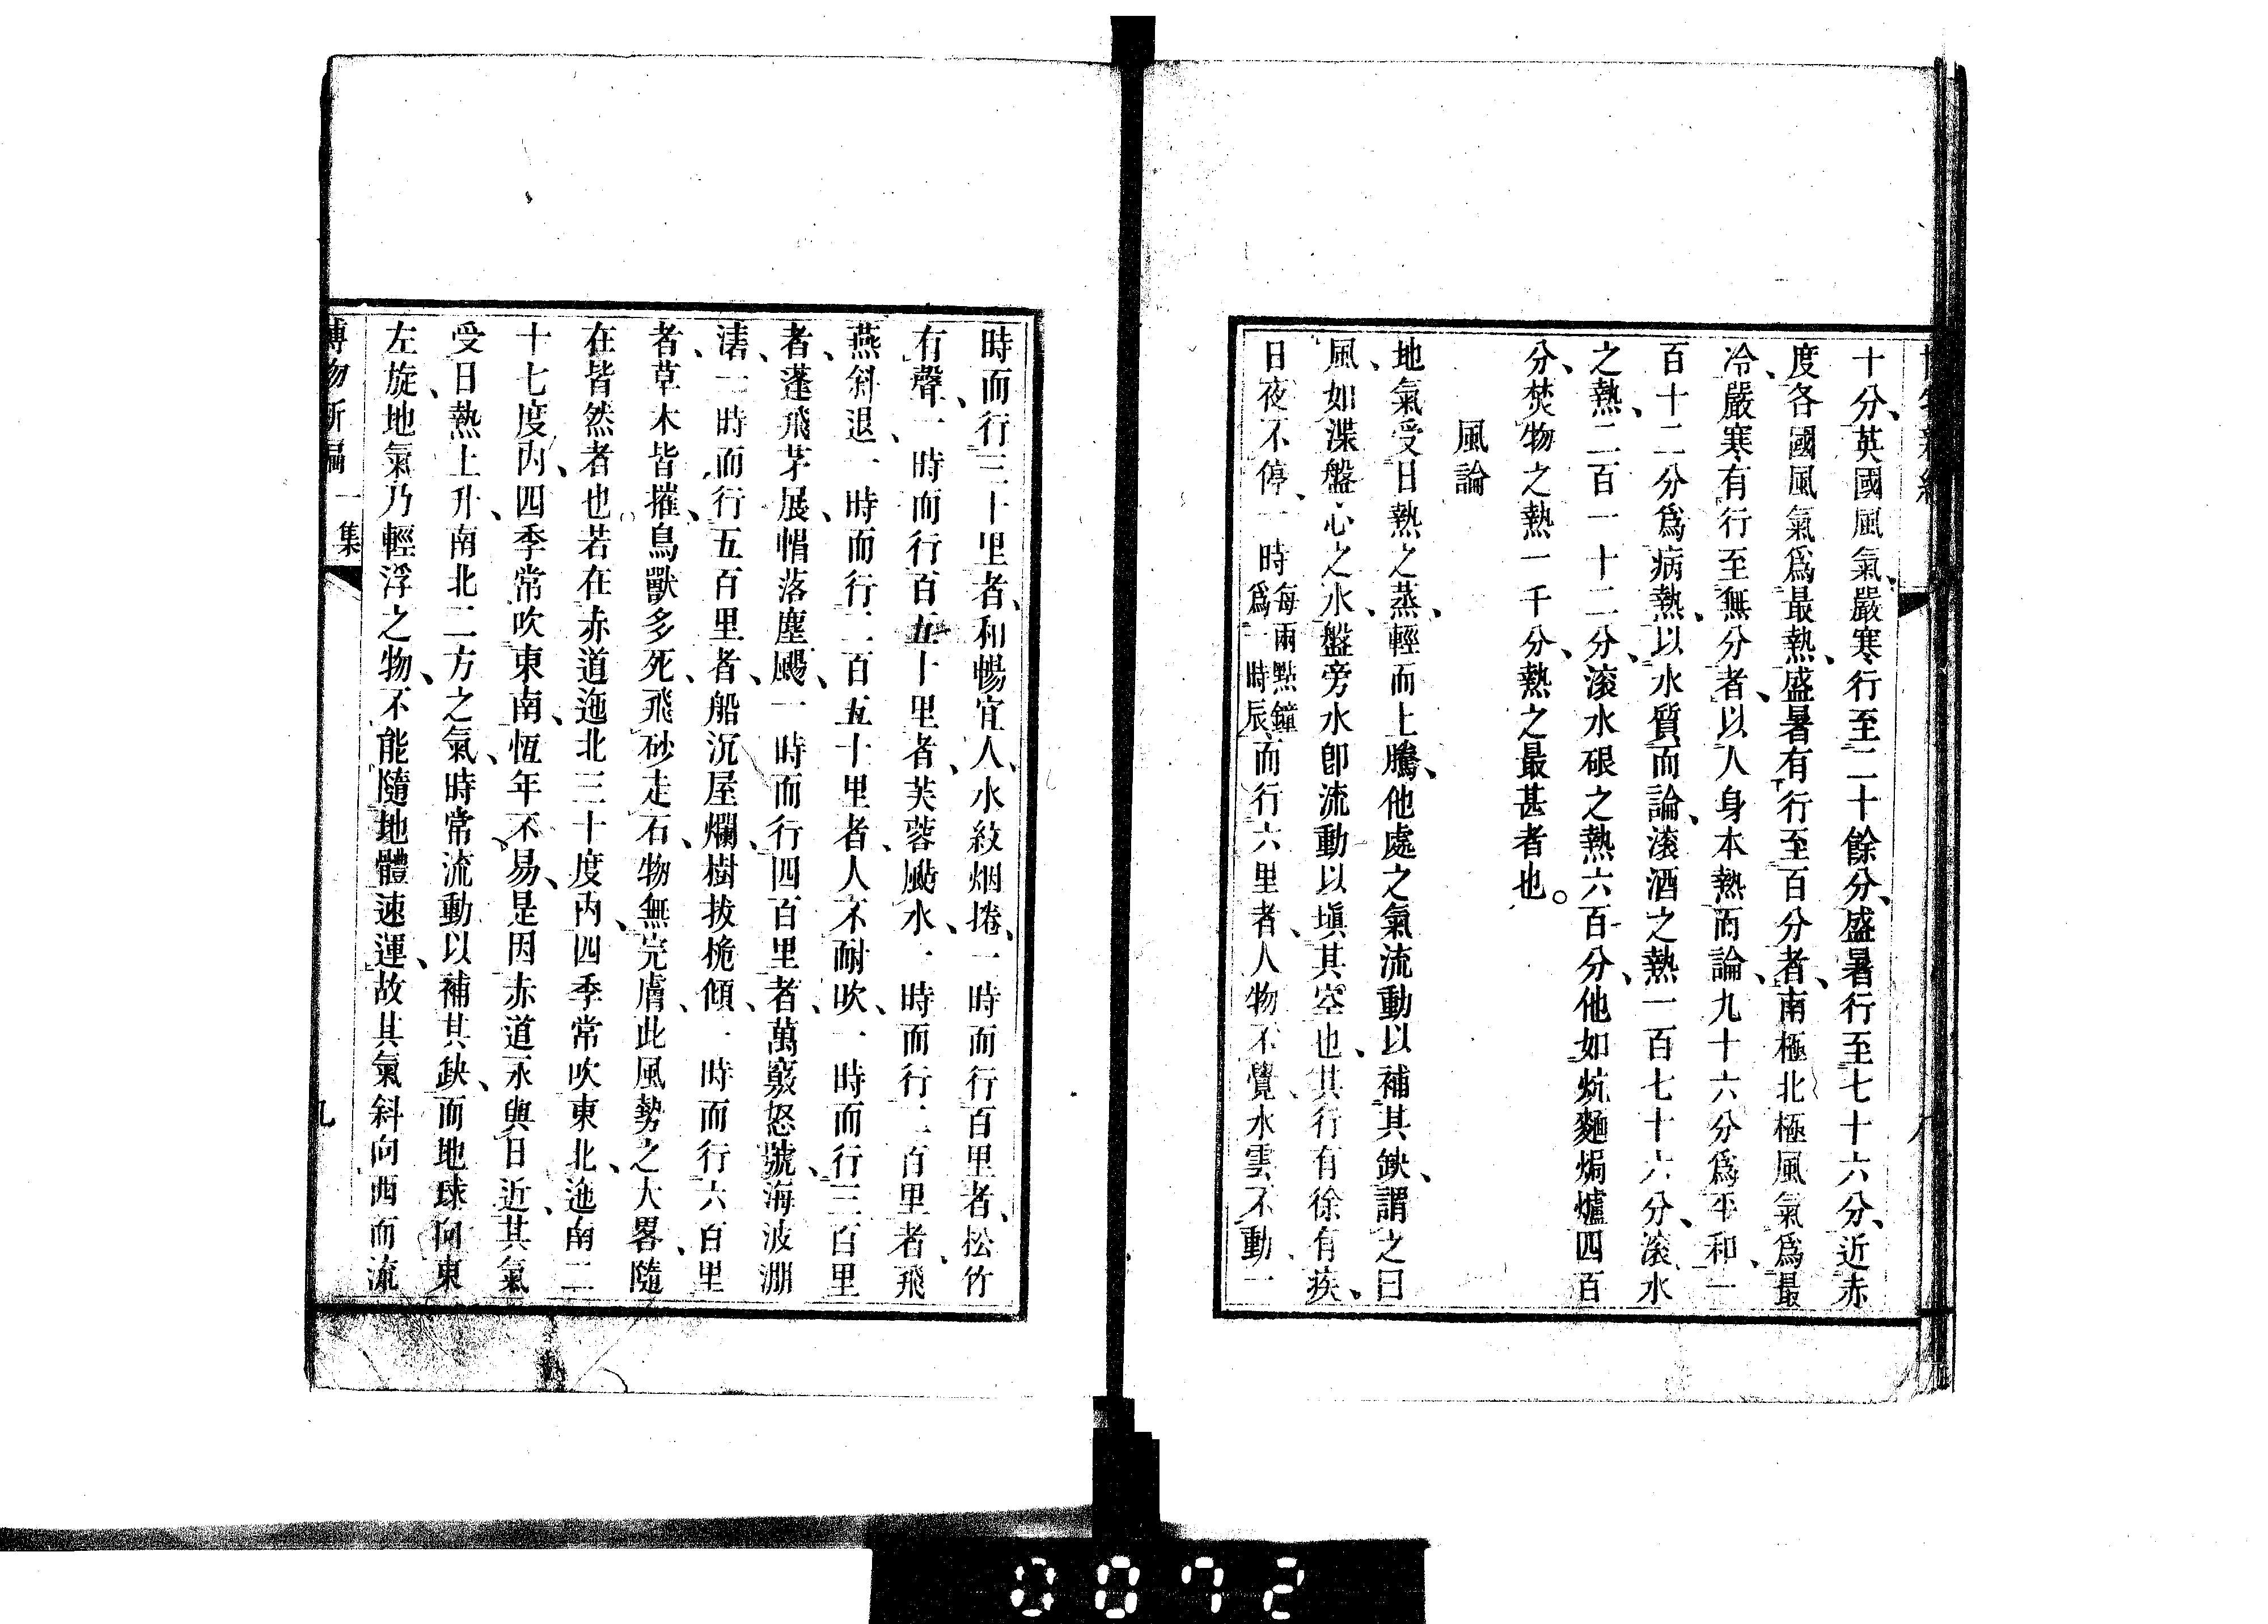 十分、英國風氣、嚴寒行至二十餘分、盛暑行至七十六分、近赤
度各國風氣爲最熱、盛暑有行至百分者、南極北極風氣爲最
冷、嚴寒有行至無分者、以人身本熱而論、九十六分爲平和、一
百十二分爲病熱、以水質而論、滚酒之熱一百七十六分、滚水
之熱、二百一十二分、滚水硍之熱六百分、他如炕麵焗爐四百
分、焚物之熱一千分、熱之最甚者也。
風論
地氣受日熱之蒸、輕而上騰、他處之氣流動以補其缺、謂之曰
風、如渫盤心之水、盤旁水卽流動以塡其空也、其行有徐有疾、
日夜不停、一時每兩點鐘爲一時辰、而行六里者、人物不覺、水雲不動、一
時而行三十里者、和暢宜人、水紋烟捲、一時而行百里者、松竹
有聲、一時而行百五十里者、芙蓉颭水、一時而行二百里者、飛
燕斜退、一時而行二百五十里者、人不耐吹、一時而行三百里
者、蓬飛茅展、帽落塵颺、一時而行四百里者、萬竅怒號、海波淜
湱、一時而行五百里者、船沉屋爛、樹拔桅傾、一時而行六百里
者、草木皆摧、鳥獸多死、飛砂走石、物無完膚、此風勢之大畧、隨
在皆然者也若在赤道迤北三十度內、四季常吹東北、迤南二
十七度內、四季常吹東南、恆年不易、是因赤道永與日近、其氣
受日熱上升、南北二方之氣、時常流動以補其缺、而地球向東
左旋、地氣乃輕浮之物、不能隨地體速運、故其氣斜向西而流
博物新編 一集
九